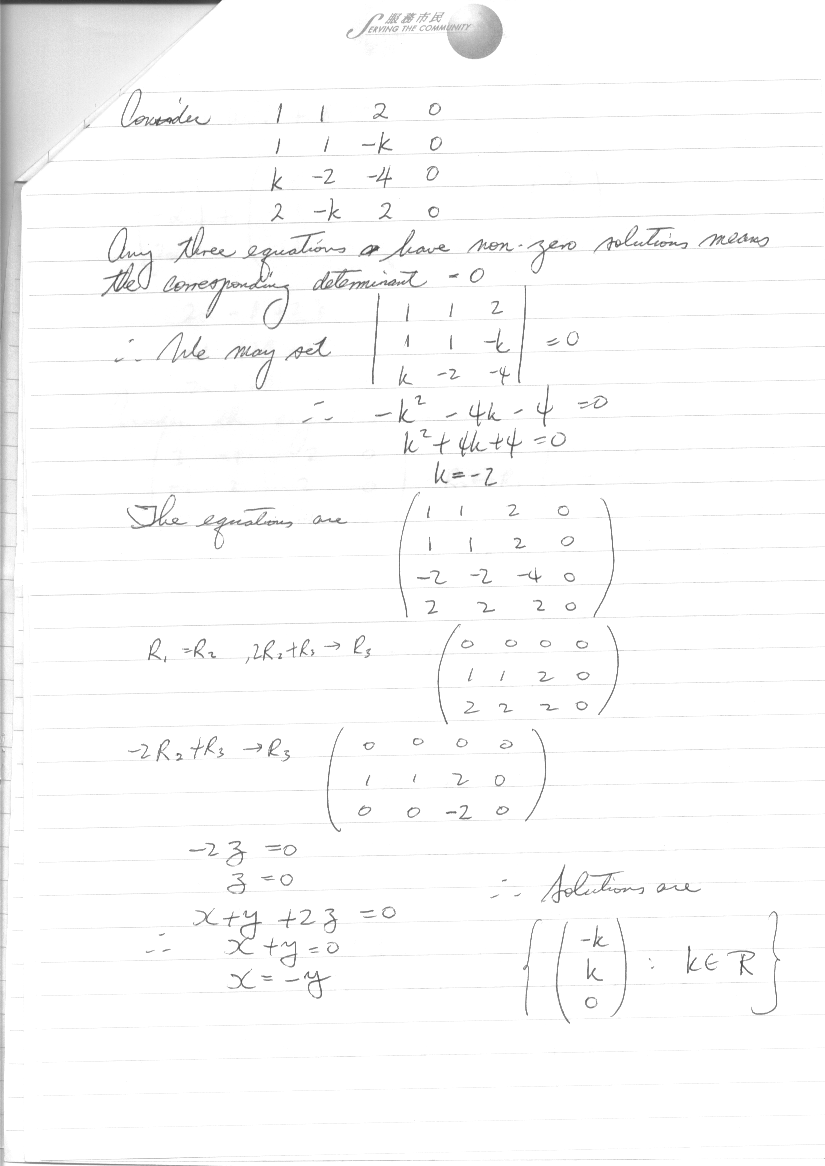 服務市民
SERVING THE COMMUNITY
Consider 1 1 2 0
1 1 -k 0
k -2 -4 0
2 -k 2 0
Any three equations have non-zero solutions means
the corresponding determinant = 0
∴ We may set | 1 1 2 |
| 1 1 -k | = 0
| k -2 -4 |
∴ -k² - 4k - 4 = 0
k² + 4k + 4 = 0
k = -2
The equations are ( 1 1 2 0
1 1 2 0
-2 -2 -4 0
2 2 2 0 )
R₁ = R₂ , 2R₂ + R₃ → R₃ ( 0 0 0 0
1 1 2 0
2 2 2 0 )
-2R₂ + R₃ → R₃ ( 0 0 0 0
1 1 2 0
0 0 -2 0 )
-2z = 0
z = 0
x + y + 2z = 0
∴ x + y = 0
x = -y
∴ Solutions are
{ ( -k
k
0 ) : k ∈ R }